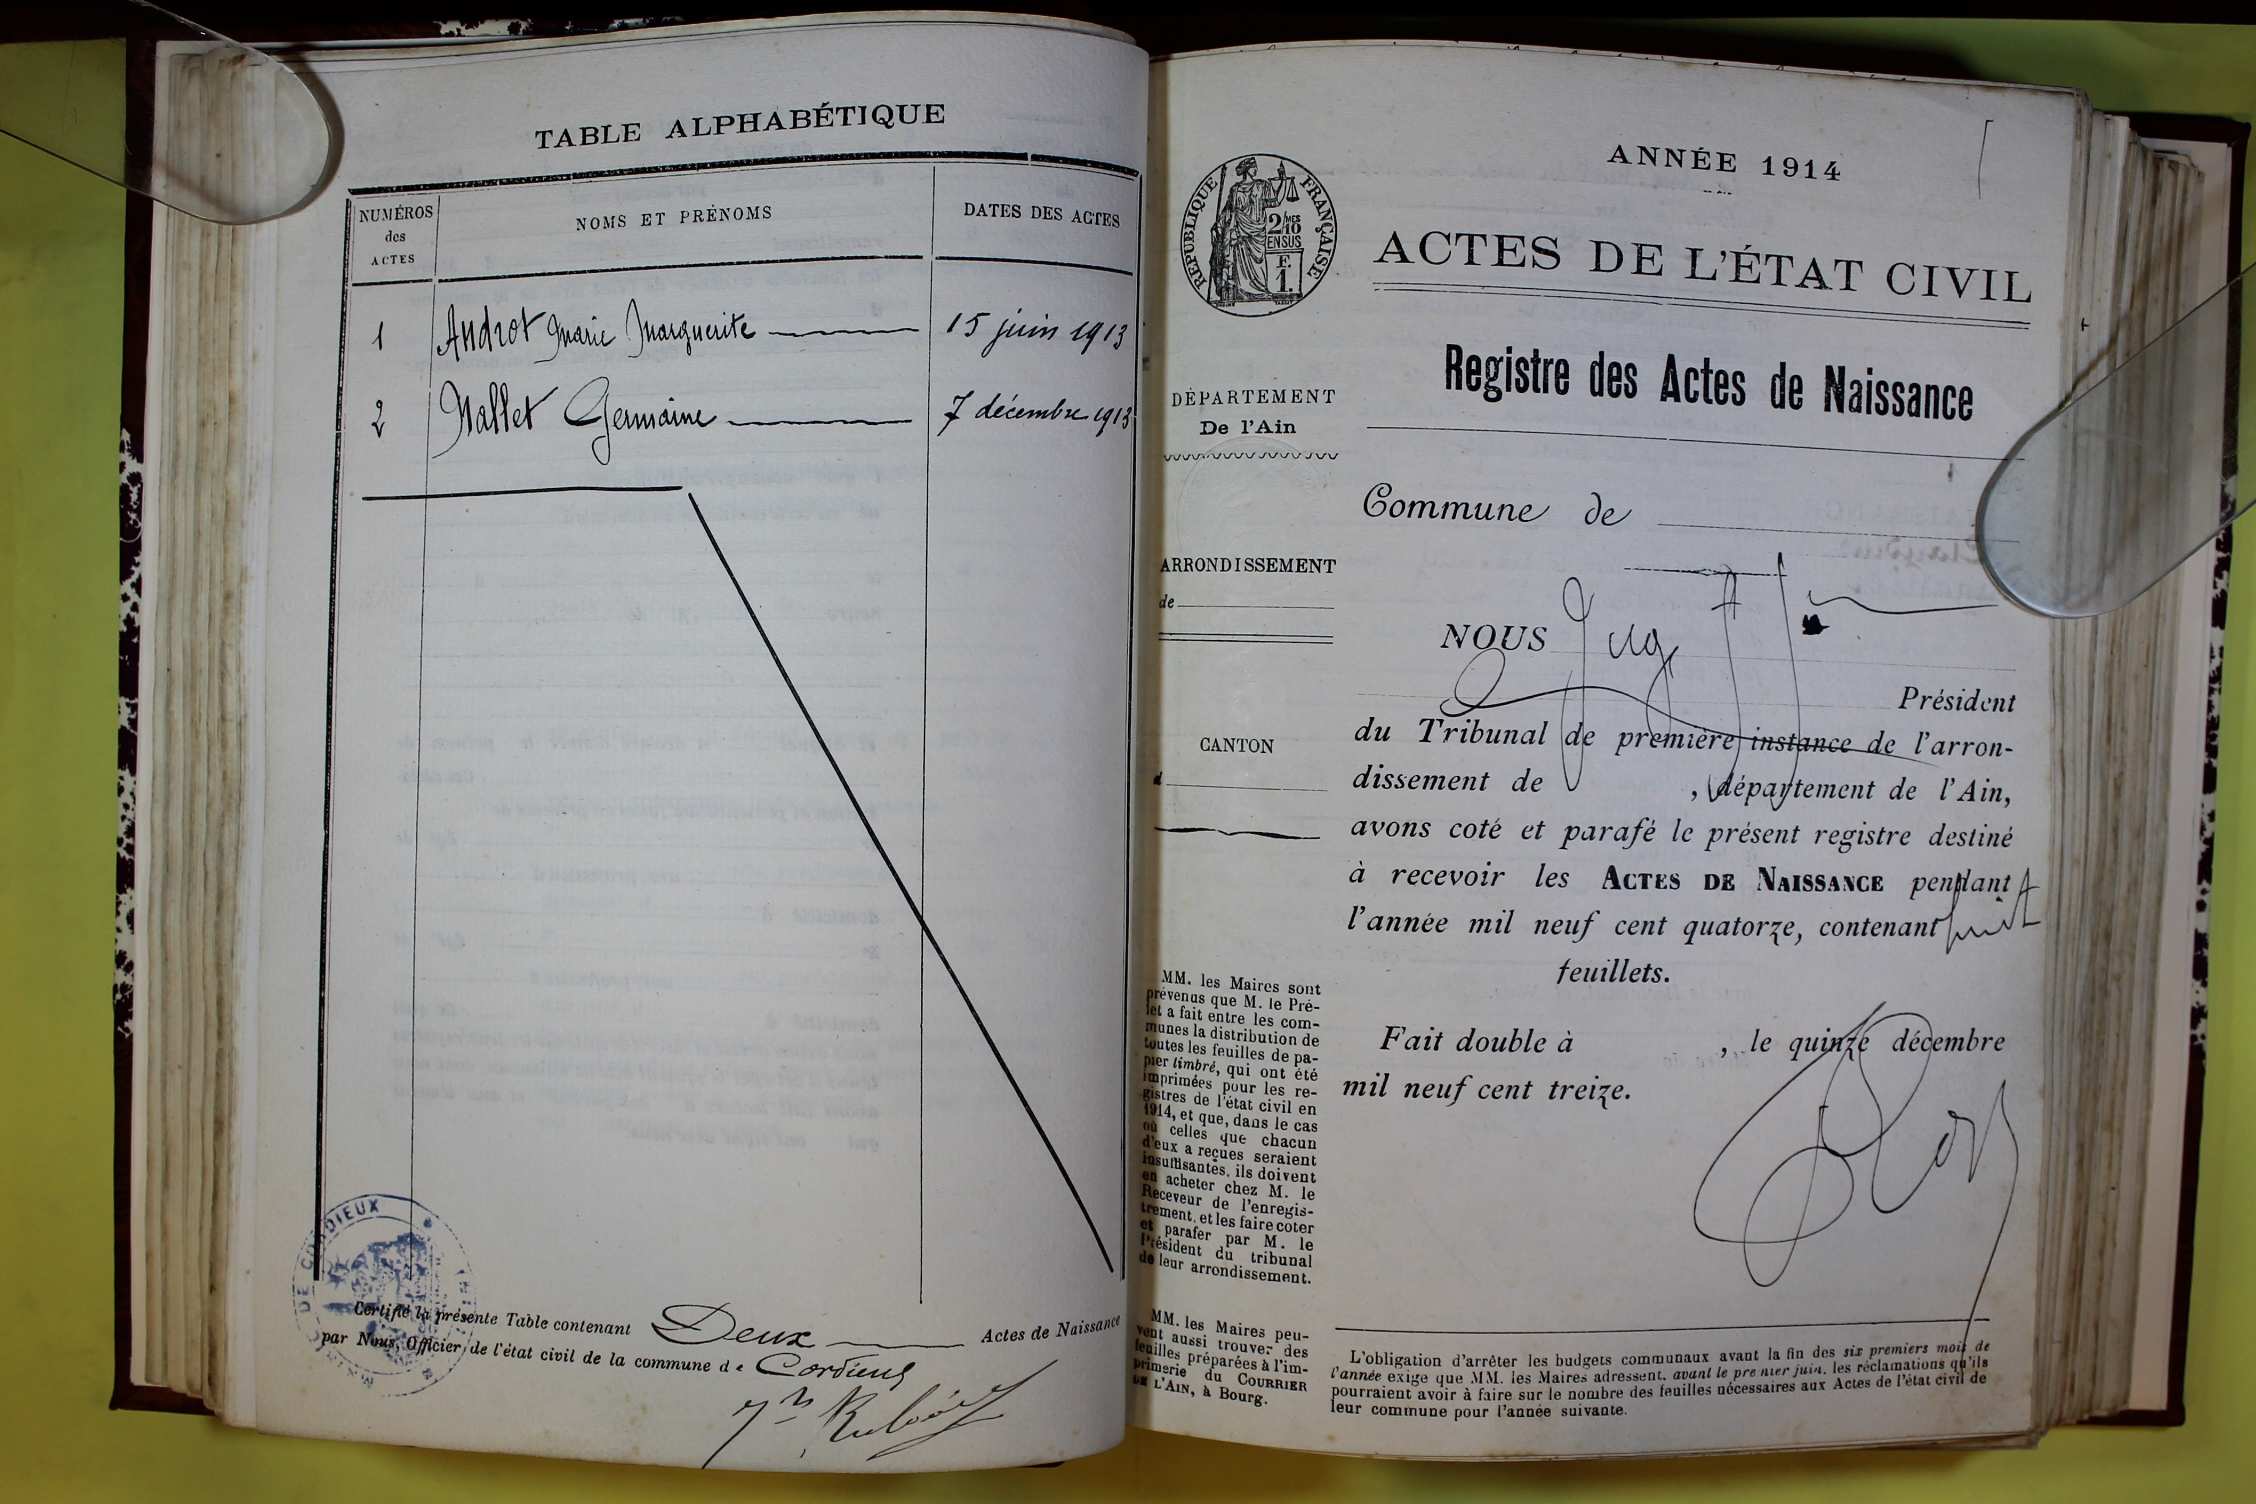 TABLE ALPHABÉTIQUE
NUMÉROS
des
ACTES
NOMS ET PRÉNOMS
DATES DES ACTES
1 Androt Marie Marguerite 15 juin 1913
2 Mallet Germaine 7 décembre 1913
DE CORDIEUX
Certifié la présente Table contenant Deux Actes de Naissance
par Nous, Officier de l'état civil de la commune de Cordieux
ANNÉE 1914
RÉPUBLIQUE FRANÇAISE
2/10MES
EN SUS
F.
1.
ACTES DE L'ÉTAT CIVIL
Registre des Actes de Naissance
DÉPARTEMENT
De l'Ain
ARRONDISSEMENT
de
CANTON
d
MM. les Maires sont
prévenus que M. le Pré-
fet a fait entre les com-
munes la distribution de
toutes les feuilles de pa-
pier timbré, qui ont été
imprimées pour les re-
gistres de l'état civil en
1914, et que, dans le cas
où celles que chacun
d'eux a reçues seraient
insuffisantes, ils doivent
en acheter chez M. le
Receveur de l'enregis-
trement, et les faire coter
et parafer par M. le
Président du tribunal
de leur arrondissement.
MM. les Maires peu-
vent aussi trouver des
feuilles préparées à l'im-
primerie du COURRIER
DE L'AIN, à Bourg.
Commune de
NOUS Juge
Président
du Tribunal de première instance de l'arron-
dissement de , département de l'Ain,
avons coté et parafé le présent registre destiné
à recevoir les ACTES DE NAISSANCE pendant
l'année mil neuf cent quatorze, contenant huit
feuillets.
Fait double à , le quinze décembre
mil neuf cent treize.
L'obligation d'arrêter les budgets communaux avant la fin des six premiers mois de
l'année exige que MM. les Maires adressent, avant le premier juin, les réclamations qu'ils
pourraient avoir à faire sur le nombre des feuilles nécessaires aux Actes de l'état civil de
leur commune pour l'année suivante.